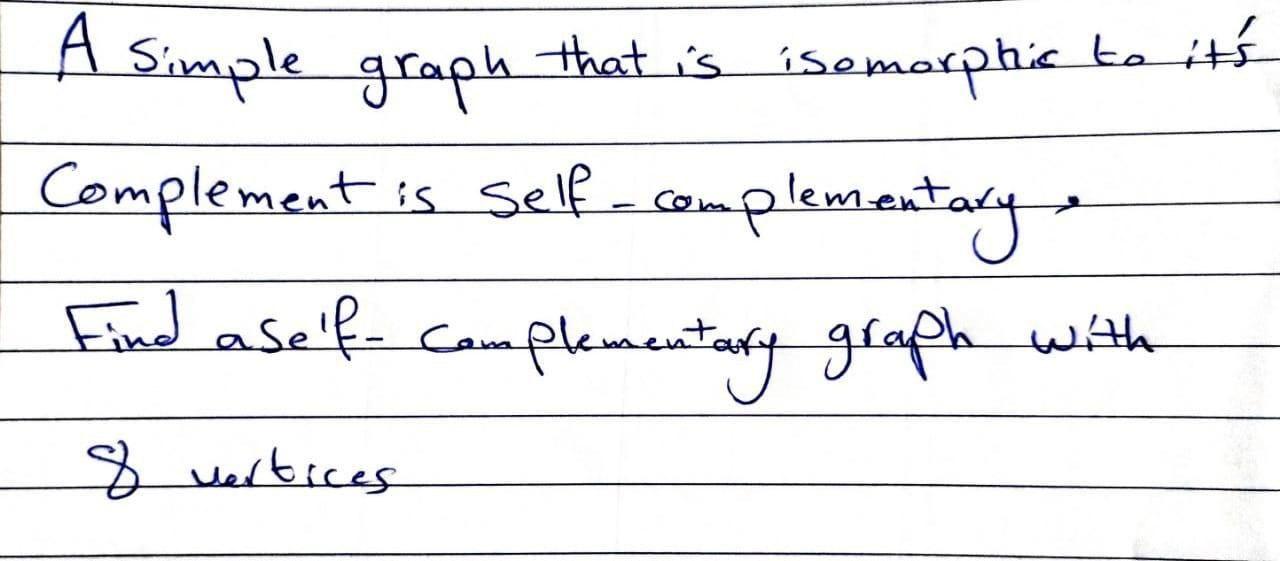 A simple graph that is isomorphic to it's
Complement is self-complementary,
Find a self-complementary graph with
8 vertices